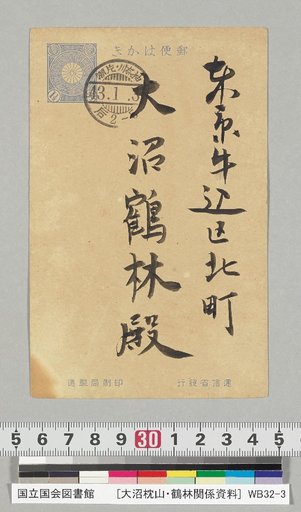 郵便はかき
東京牛込区北町
大沼鶴林殿
43.1.3
逓信省発行
印刷局製造
5 6 7 8 9 30 1 2 3 4 5
国立国会図書館 [大沼枕山・鶴林関係資料] WB32-3